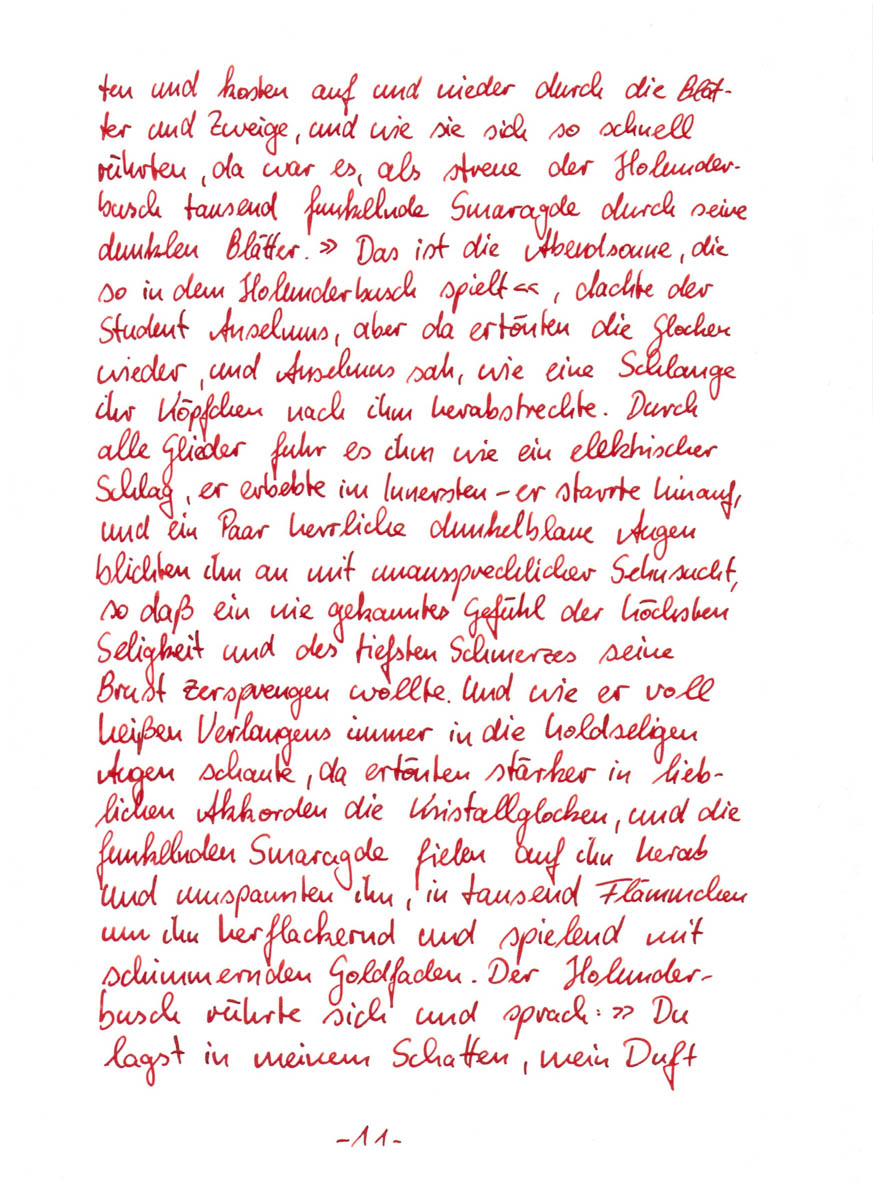 ten und kosten auf und nieder durch die Blät-
ter und Zweige, und wie sie sich so schnell
rührten, da war es, als streue der Holunder-
busch tausend funkelnde Smaragde durch seine
dunklen Blätter. »Das ist die Abendsonne, die
so in dem Holunderbusch spielt««, dachte der
Student Anselmus, aber da ertönten die Glocken
wieder, und Anselmus sah, wie eine Schlange
ihr Köpfchen nach ihm herabstreckte. Durch
alle Glieder fuhr es ihm wie ein elektrischer
Schlag, er erbebte im Innersten – er starrte hinauf,
und ein Paar herrliche dunkelblaue Augen
blickten ihn an mit unaussprechlicher Sehnsucht,
so daß ein nie gekanntes Gefühl der höchsten
Seligkeit und des tiefsten Schmerzes seine
Brust zersprengen wollte. Und wie er voll
heißen Verlangens immer in die holdseligen
Augen schaute, da ertönten stärker in lieb-
lichen Akkorden die Kristallglocken, und die
funkelnden Smaragde fielen auf ihn herab
und umspannten ihn, in tausend Flämmchen
um ihn herflackernd und spielend mit
schimmernden Goldfaden. Der Holunder-
busch rührte sich und sprach: »Du
lagst in meinem Schatten, mein Duft
-11-